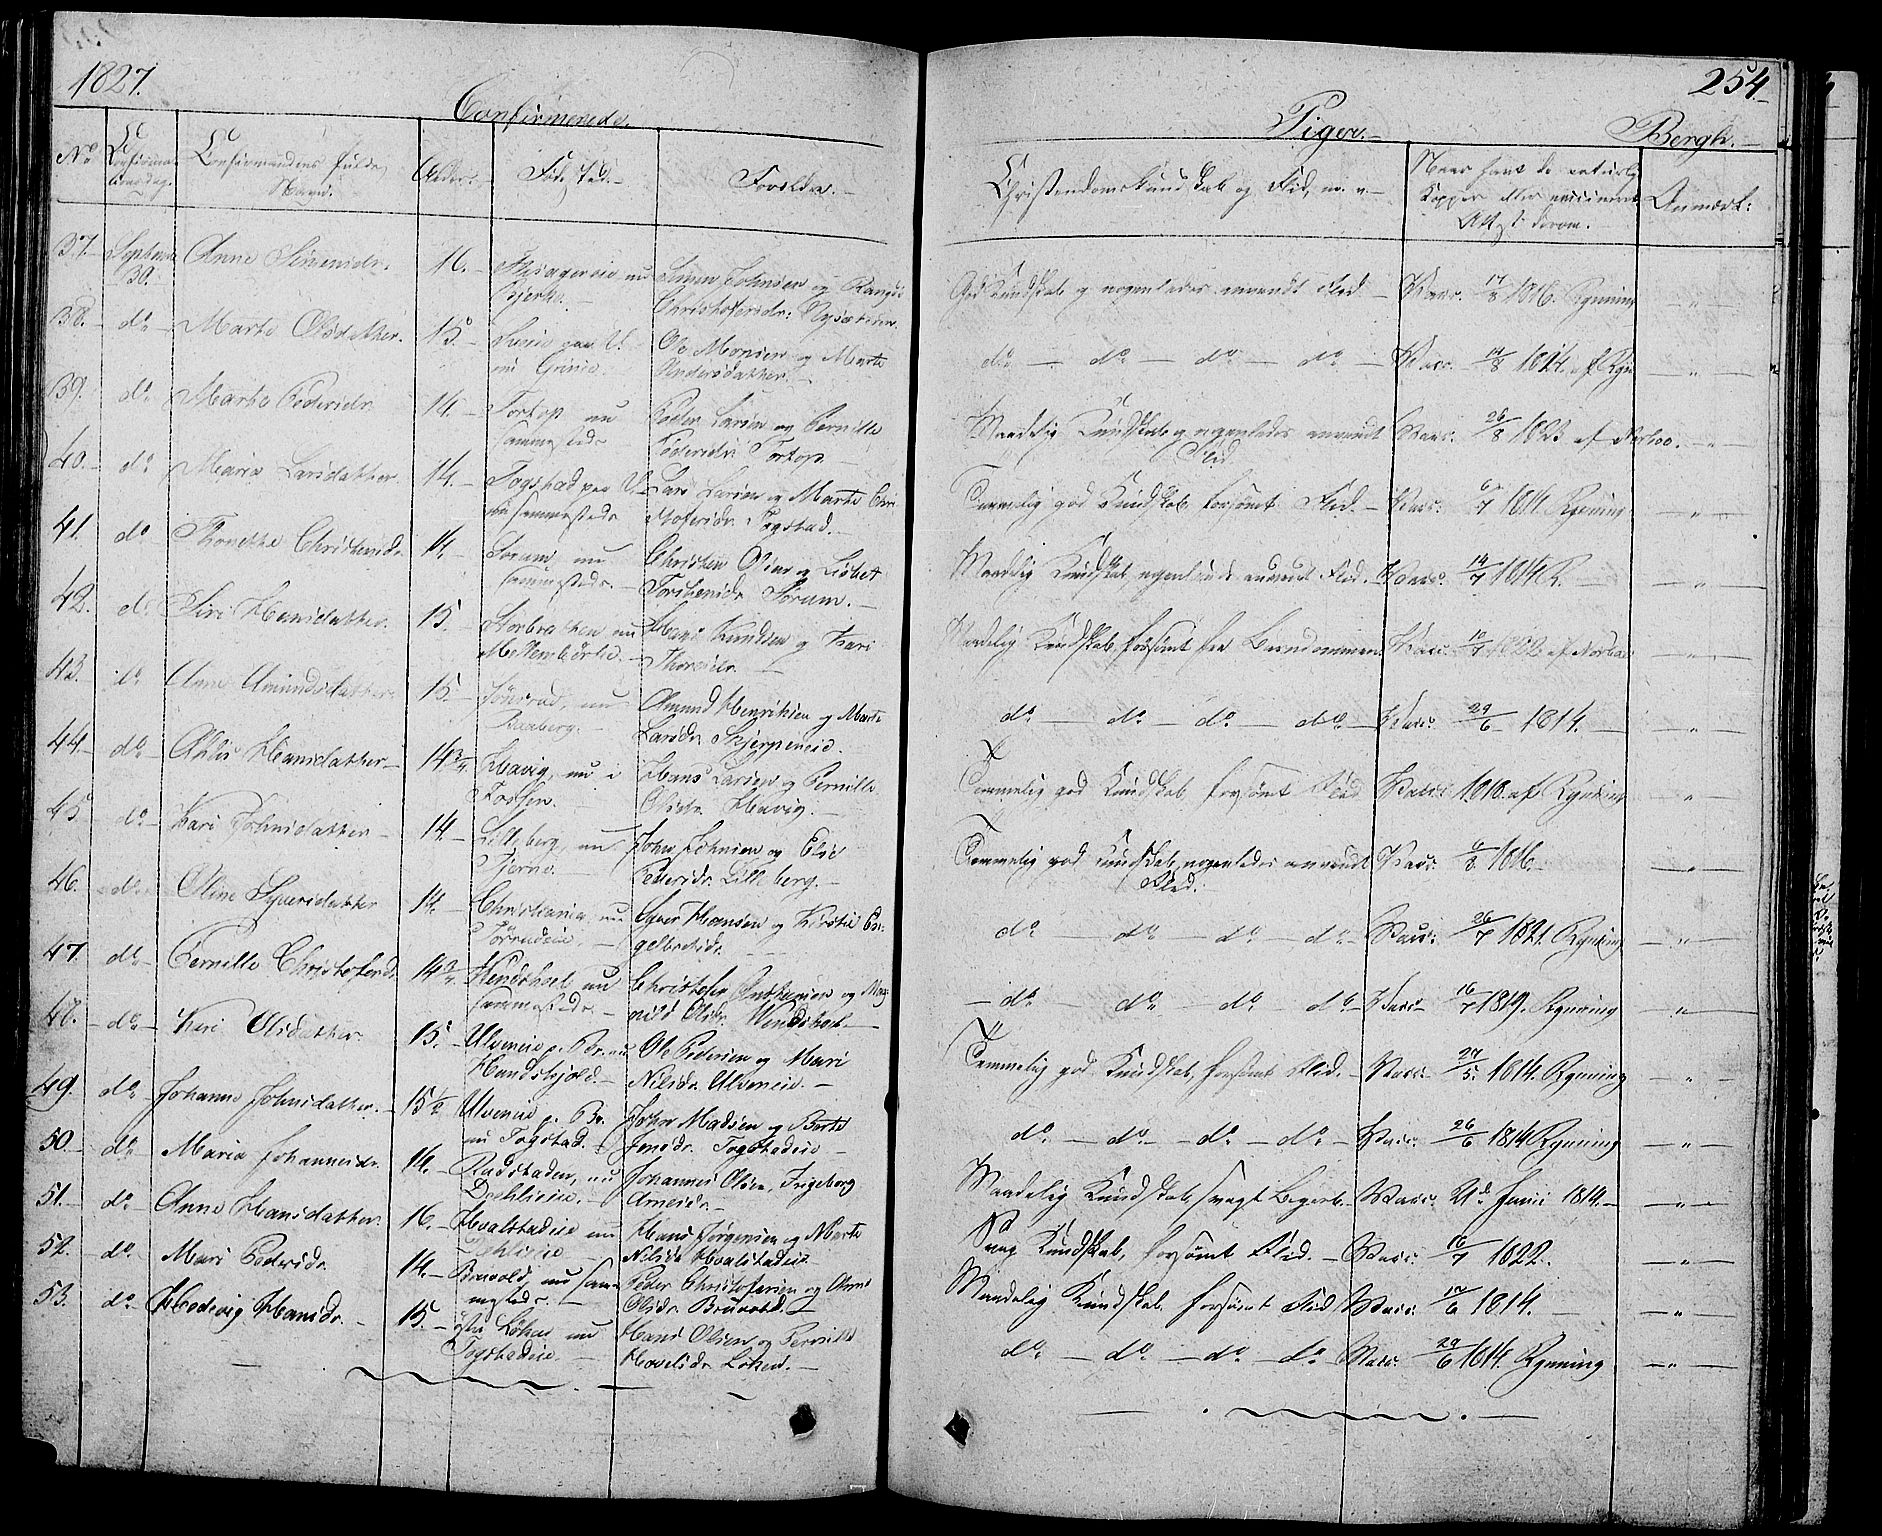 1827.
254
Confirmerede
Piger.
Bergh.
No
Confirmationsdag
Confirmandens fulde Navn.
Alder.
Fødested.
Forældre.
Christendomskundskab og Flid, m. v.
Naar havt de naturlige Kopper eller vaccineret Attest derom.
Anmærk:
37. September 30. Anne Simensdr. 16. nu Bjerke. Simen Johnsen og Rangdi Christofersdr: God Kundskab og nogenledes anvendt Flid. Vacc. 17/8 1816. Rynning "
38. do Marte Olsdatter. 15. nu Grinie. Ole Monsen og Marte Andersdatter. do do do do Vacc. 14/8 1814. af Ryn "
39. do Marte Pedersdr 14. Tortop nu sammesteds Peder Larsen og Pernille Pedersdr Tortop Maadelig Kundskab og nogenledes anvendt Flid. Vacc. 26/8 1823 af "
40. do Maria Larsdatter 14. Togstad nu sammesteds Lars Larsen og Marte Christofersdr Togstad. Temmelig god Kundskab forsømt Flid. Vacc. 6/7 1814 Rynning "
41. do Thonette Christensdr 14. Sørum nu sammesteds. Christen Olsen og Lisbet Torstensdr Sørum. Maadelig Kundskab, nogenlunde anvendt Flid. Vacc. 14/7 1814 R. "
42. do Siri Hansdatter. 15. Storbraathen nu Hans Knudsen og Kari Thoresdr. Maadelig Kundskab, forsømt fra Barndommen. Vacc. 10/7 1822 af "
43. do Anne Amundsdatter 15. nu Baaberg. Amund Henriksen og Marte Larsdr Skjerpeneie. do do do do Vacc. 29/6 1814. "
44 do Ahlis Hansdatter 14 3/4 Havig, nu i Fossen. Hans Larsen og Pernille Olsdr Havig. Temmelig god Kundskab, forsømt Flid Vacc. 1818. af Rynning "
45 do Kari Johnsdatter 14 Lilleberg, nu Bjerne. John Johnsen og Elie Pedersdr Lilleberg. Temmelig god Kundskab, nogenledes anvendt Flid. Vacc. 6/8 1816. "
46. do Oline Syversdatter 14. Christiania nu Syver Hansen og Kirstie Engelbretsdr. do do do do Vacc. 26/7 1821. Rynning "
47. do Pernille Christofersdr 14 3/4 Wendshoel nu sammesteds. Christofer og Magnild Olsdr. Wendshoel. do do do do Vacc. 16/7 1819. Rynning "
48. do Kari Olsdatter 15. Ulveneie nu Handskjold. Ole Pedersen og Mari Nilsdr. Ulveneie. Temmelig god Kundskab forsømt Flid. Vacc. 27/5. 1814. Rynning "
49. do Johanne Johnsdatter. 15 1/2 Ulveneie nu Togstad. Johan Madsen og Berte Jensdr. Togstadeie do do do do Vacc. 26/6 1814 Rynning "
50. do Maria Johannesdr. 14. Rudstaden, nu Dæhlieie. Johannes Olsen, Ingeborg Arnesdr. Maadelig Kundskab, svagt Begreb. Vacc. 21de Junii 1814. "
51. do Anne Hansdatter 16. Hvalstadeie nu Dæhlieie Hans Jørgensen og Marte Nilsdr Hvalstadeie Svag Kundskab, forsømt Flid. Vacc. 16/7 1822. "
52. do Mari Pedersdr. 14. Bruvold nu sammesteds. Peder Christofersen og Anne Olsdr. Bruvold. Maadelig Kundskab forsømt Flid Vacc. 14/6 1814. "
53. do Hedevig Hansdr. 15. østre Løken nu Togstadeie. Hans Olsen og Pernille Hovelsdr Løken. do do do do Vacc. 29/6 1814. Rynning "